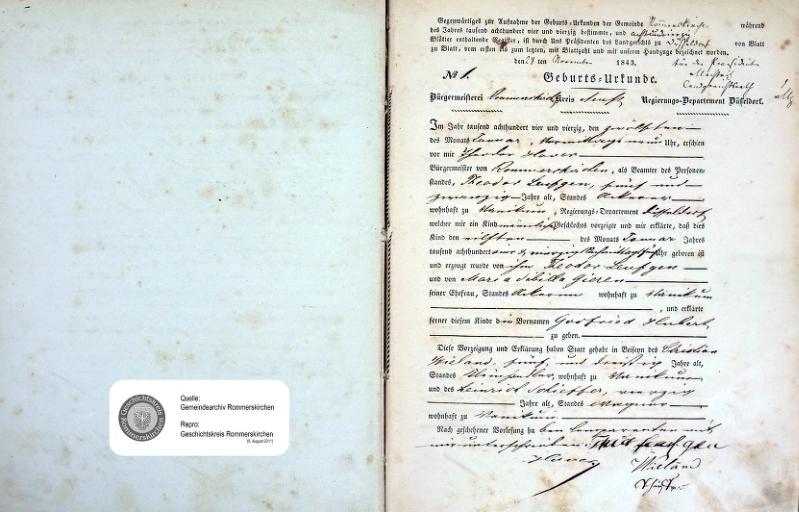 Gegenwärtiges zur Aufnahme der Geburts-Urkunden der Gemeinde Rommerskirchen während
des Jahres tausend achthundert vier und vierzig bestimmte, und achtundvierzig
Blätter enthaltende Register, ist durch Uns Präsidenten des Landgerichts zu Düsseldorf von Blatt
zu Blatt, vom ersten bis zum letzten, mit Blattzahl und mit unserm Handzuge bezeichnet worden.
den 28 ten November 1843.
für den Praesidenten
Landgerichtsrath
No 1.
Geburts-Urkunde.
Bürgermeisterei Rommerskirchen Kreis Neuß Regierungs-Departement Düsseldorf.
Im Jahr tausend achthundert vier und vierzig, den zwölften
des Monats Januar, Vormittags neun Uhr, erschien
vor mir Theodor Hover
Bürgermeister von Rommerskirchen, als Beamter des Personen-
standes, Theodor Leufgen, fünf und
zwanzig Jahre alt, Standes Ackerer
wohnhaft zu Vanikum, Regierungs-Departement Düsseldorf
welcher mir ein Kind männlichen Geschlechts vorzeigte und mir erklärte, daß dies
Kind den eilften des Monats Januar Jahres
tausend achthundert vier & vierzig Nachmittags Uhr geboren ist
und erzeugt wurde von ihm Theodor Leufgen
und von Maria Sibilla Gieren
seiner Ehefrau, Standes Ackerin wohnhaft zu Vanikum
, und erklärte
ferner diesem Kinde den Vornamen Gotfried Hubert
zu geben.
Diese Vorzeigung und Erklärung haben Statt gehabt in Beiseyn des Christian
Wieland, fünf und dreißig Jahre alt,
Standes wohnhaft zu Vanikum
und des Heinrich Schieffer, vierzig
Jahre alt, Standes Wagner
wohnhaft zu Vanikum
Nach geschehener Vorlesung haben Comparenten mit
mir unterschrieben. Theod Leufgen
Hover
Wieland
Geschichtskreis Rommerskirchen
Quelle:
Gemeindearchiv Rommerskirchen
Repro:
Geschichtskreis Rommerskirchen
(6. August 2011)